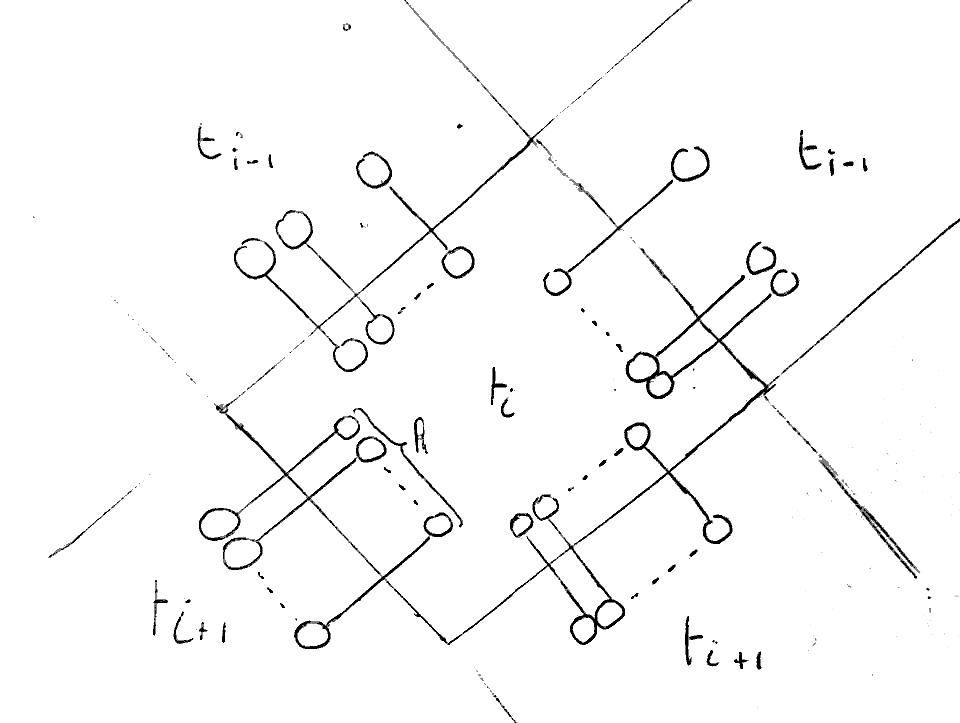 t_{i-1}
t_{i-1}
t_i
R
t_{i+1}
t_{i+1}